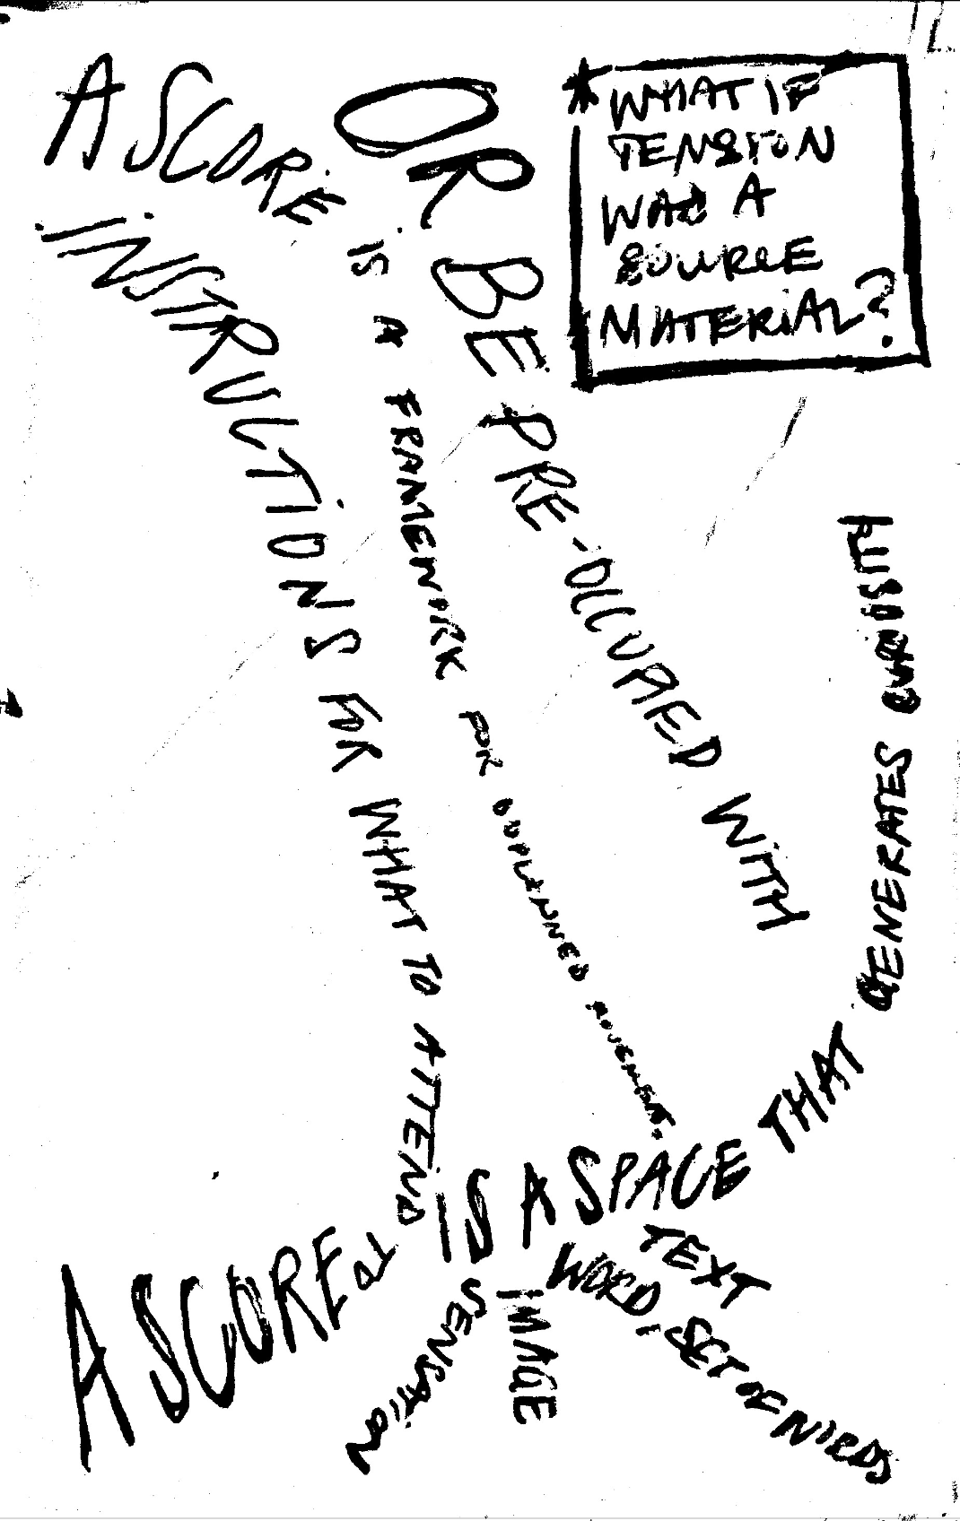 A SCORE IS A FRAMEWORK FOR UNPLANNED MOVEMENT.
INSTRUCTIONS FOR WHAT TO ATTEND TO
OR BE PRE-OCCUPIED WITH
* WHAT IF
TENSION
WAS A
SOURCE
MATERIAL?
A SCORE IS A SPACE THAT GENERATES CURIOSITY
TEXT
WORD, SET OF
IMAGE
SENSATION